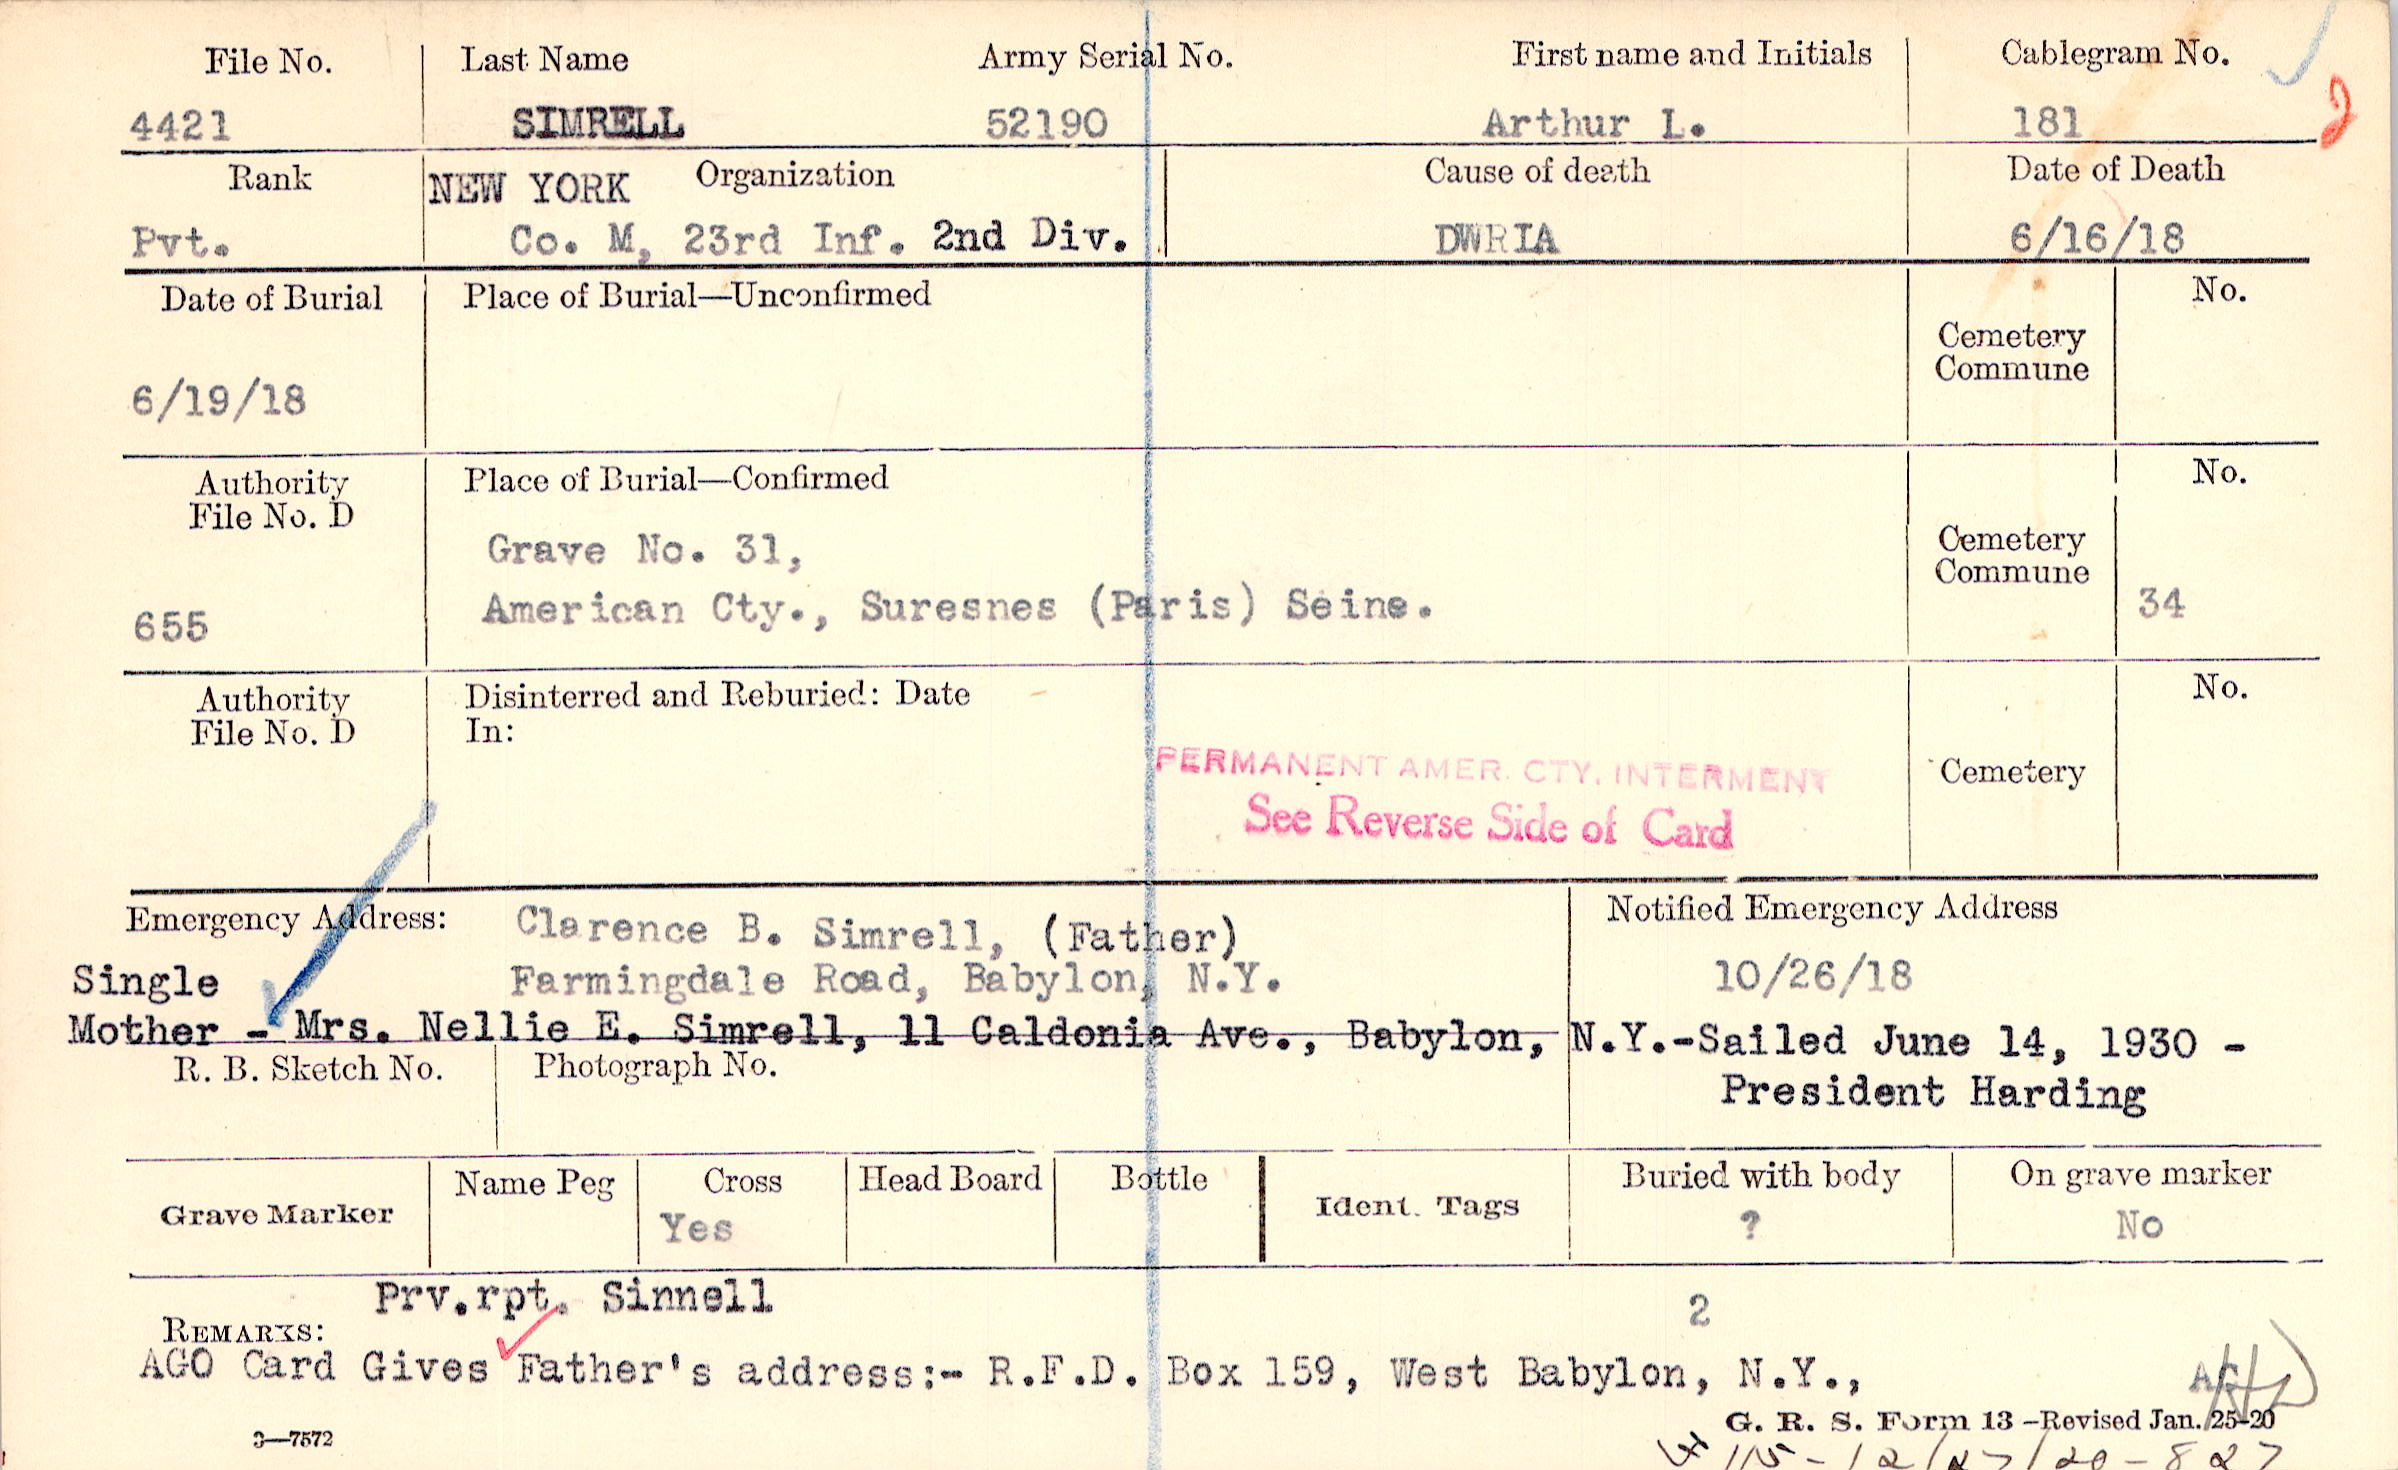 File No. Last Name Army Serial No. First name and Initials Cablegram No.
4421 SIMRELL 52190 Arthur L. 181 2
Rank NEW YORK Organization Cause of death Date of Death
Pvt. Co. M, 23rd Inf. 2nd Div. DWRIA 6/16/18
Date of Burial Place of Burial—Unconfirmed No.
Cemetery
Commune
6/19/18
Authority Place of Burial—Confirmed No.
File No. D
Grave No. 31, Cemetery
Commune
655 American Cty., Suresnes (Paris) Seine. 34
Authority Disinterred and Reburied: Date No.
File No. D In:
PERMANENT AMER. CTY. INTERMENT Cemetery
See Reverse Side of Card
Emergency Address: Clarence B. Simrell, (Father) Notified Emergency Address
Single Farmingdale Road, Babylon, N.Y. 10/26/18
Mother - Mrs. Nellie E. Simrell, 11 Caldonia Ave., Babylon, N.Y.-Sailed June 14, 1930 -
R. B. Sketch No. Photograph No. President Harding
Grave Marker Name Peg Cross Head Board Bottle Ident. Tags Buried with body On grave marker
Yes ? No
Prv.rpt. Sinnell 2
REMARKS:
AGO Card Gives Father's address:- R.F.D. Box 159, West Babylon, N.Y.,
G. R. S. Form 13 -Revised Jan. 25-20
3—7572